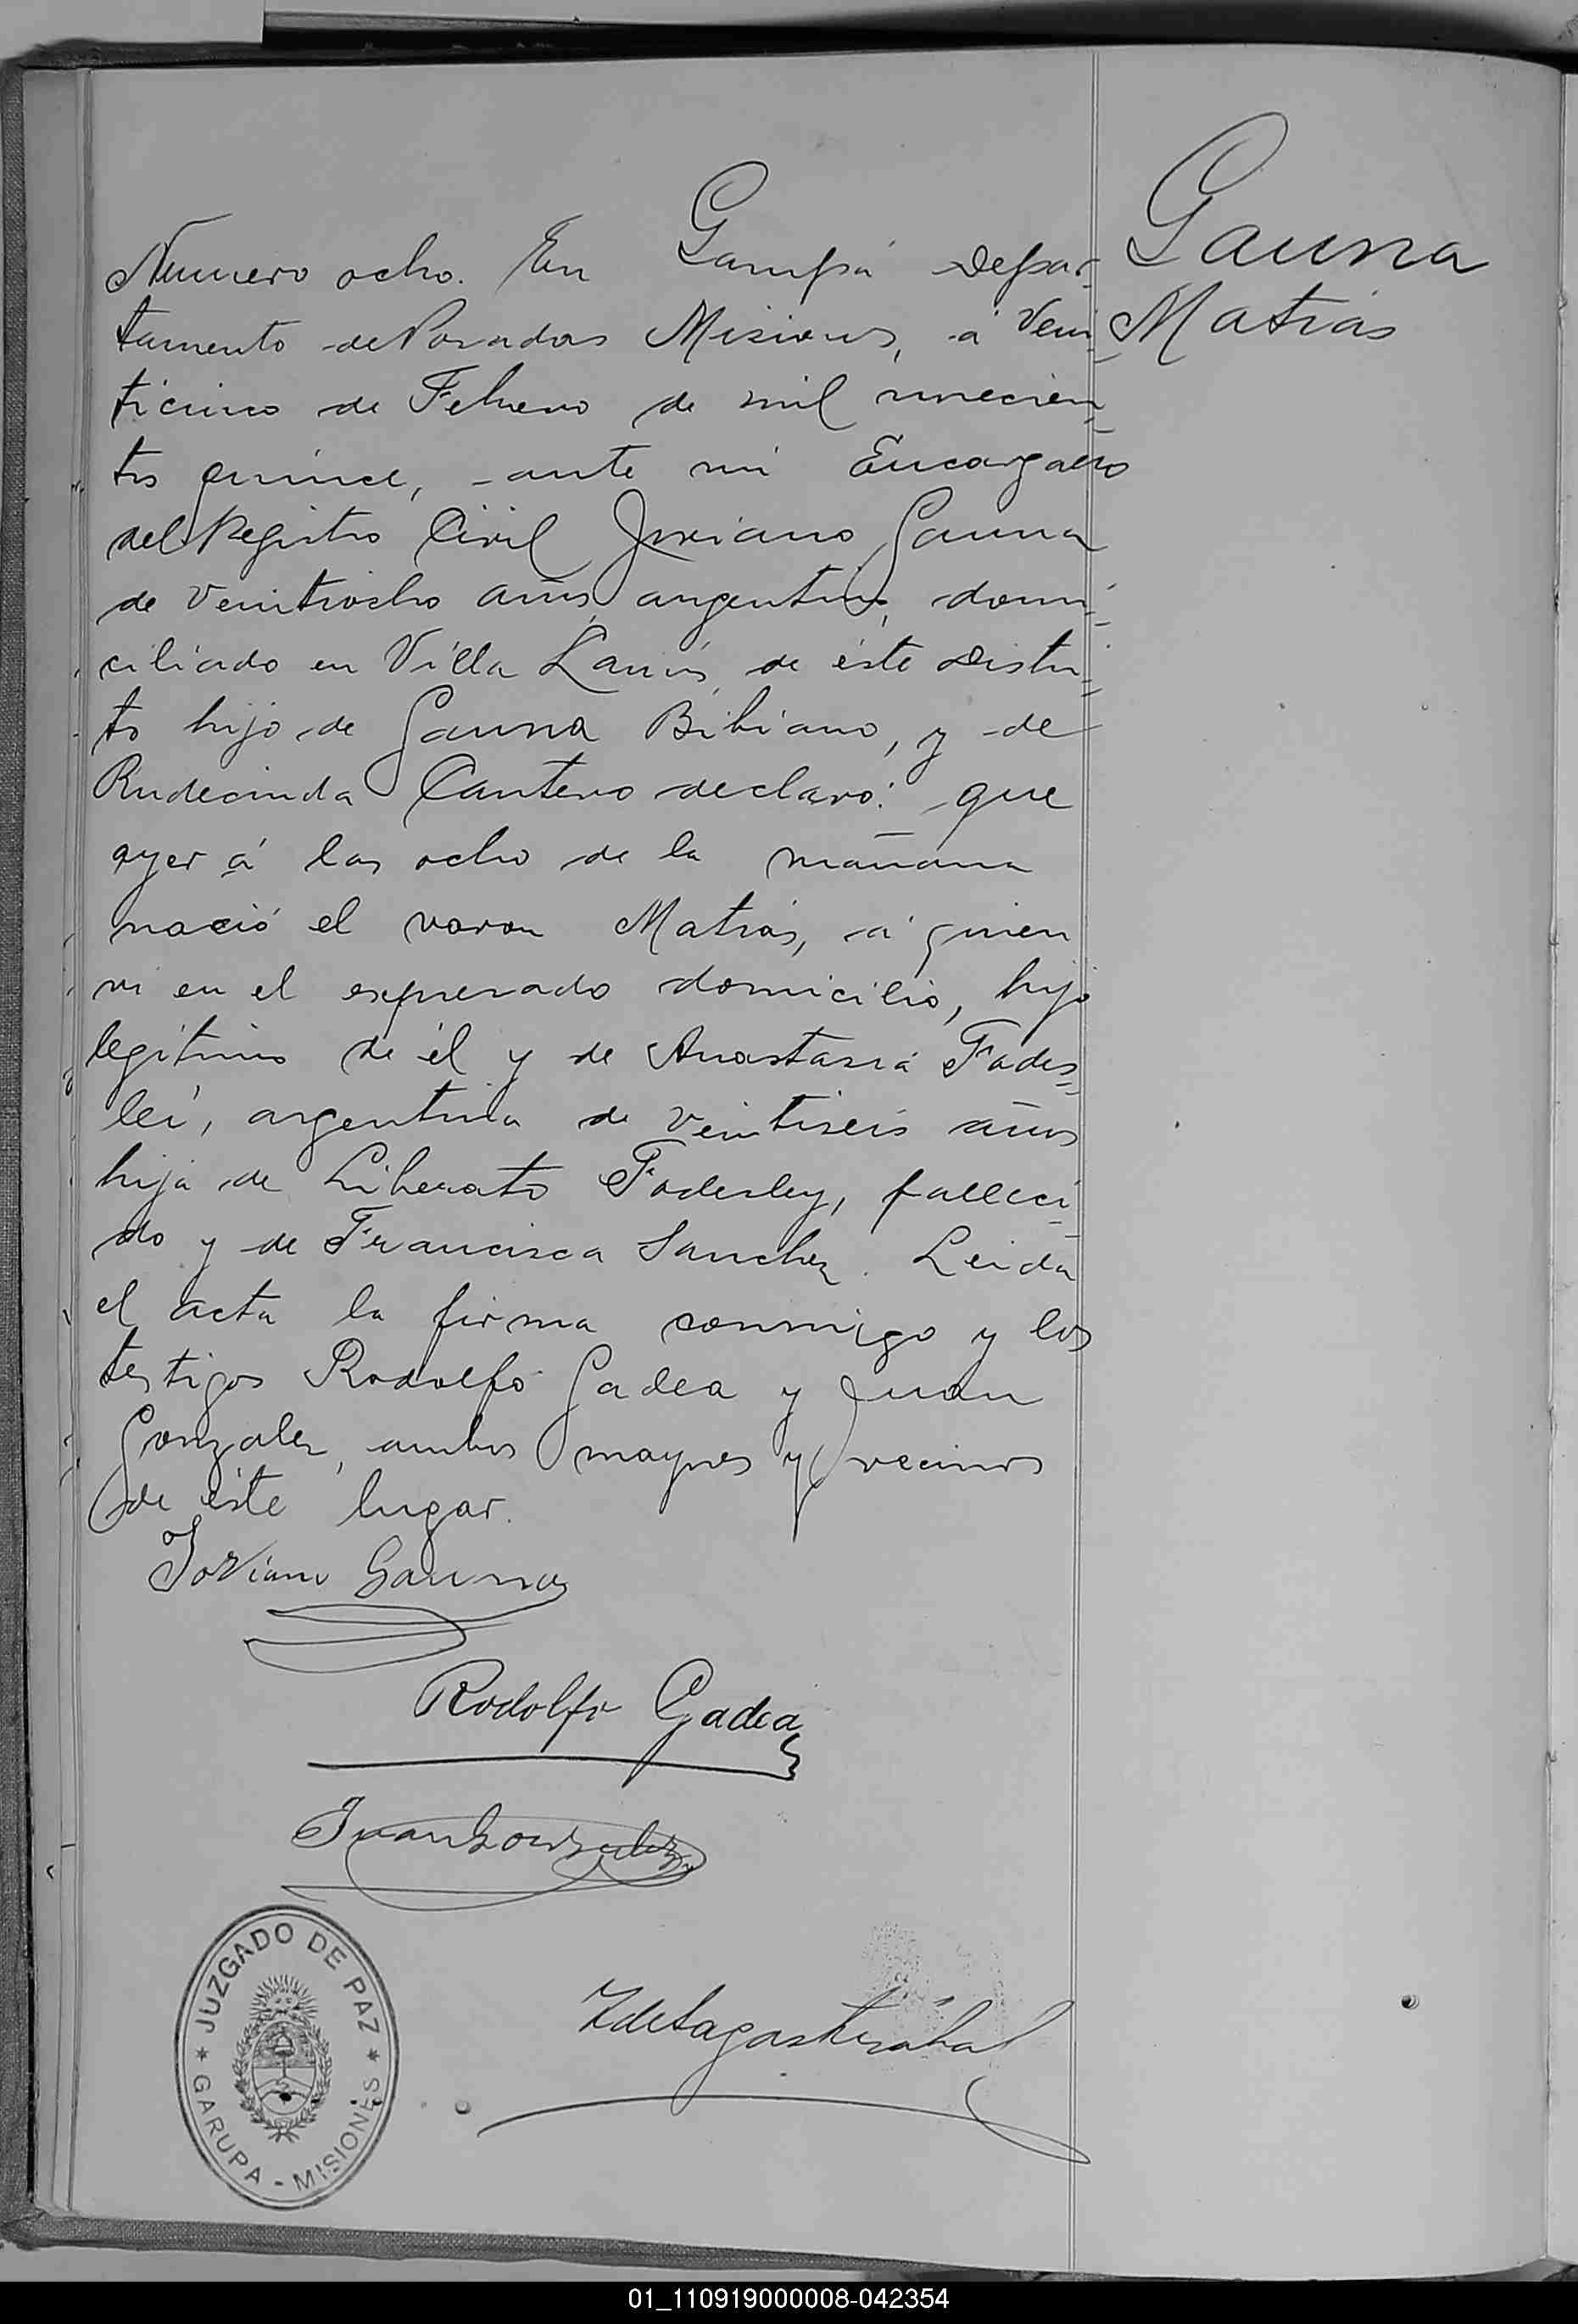 Gauna
Matias
Numero ocho. En Garupá Depar-
tamento de Posadas Misiones, á Vein-
ticinco de Febrero de mil novecien-
tos quince, ante mi Encargado
del Registro Civil Joviano Gauna
de veintiocho años argentino, domi-
ciliado en Villa Lanús, de éste Distri-
to hijo de Gauna Bibiano, y de
Rudecinda Cantero declaró: que
ayer á las ocho de la mañana
nació el varon Matias, á quien
vi en el expresado domicilio, hijo
legítimo de él y de Anastasia Fades-
lei, argentina de veintiseis años
hija de Liberato Fadesley, falleci-
do y de Francisca Sanchez. Leida
el acta la firma conmigo y los
testigos Rodolfo Gadea y Juan
Gonzalez, ambos mayores y vecinos
de éste lugar.
Joviano Gauna
Rodolfo Gadea
Juan Gonzalez
JUZGADO DE PAZ
GARUPA - MISIONES
01_110919000008-042354